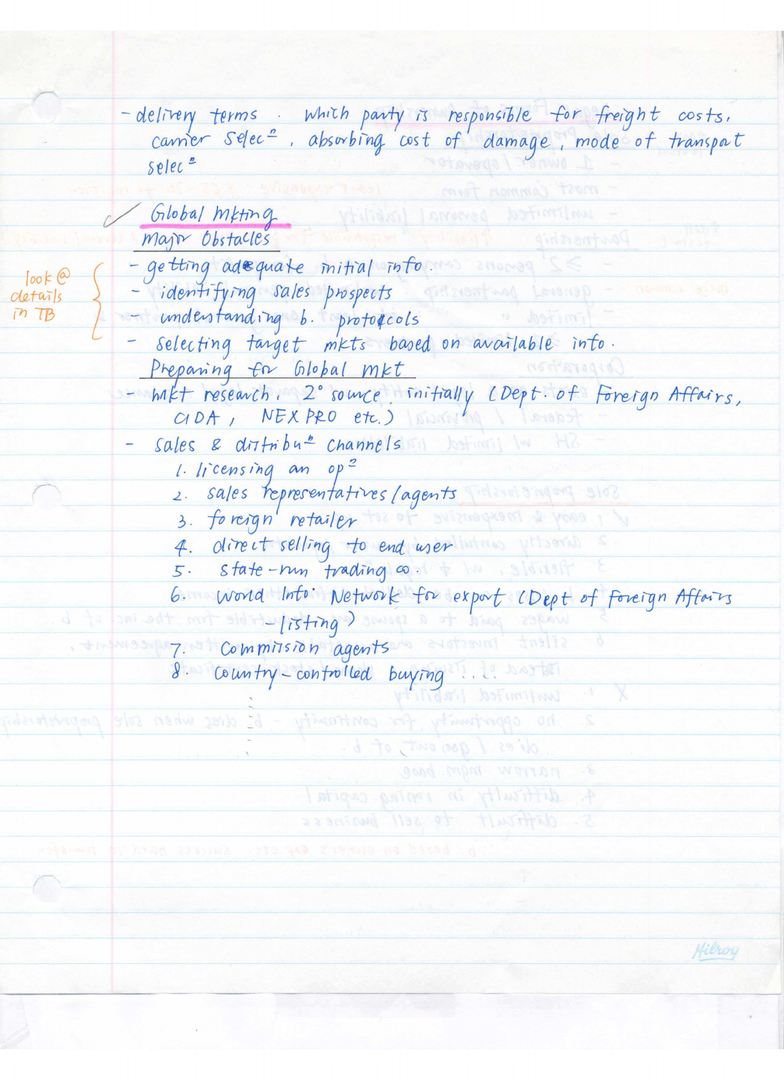 - delivery terms. which party is responsible for freight costs,
carrier selecⁿ, absorbing cost of damage, mode of transport
selecⁿ
✓ Global Mkting
Major Obstacles
- getting adequate initial info.
look @
details
in TB
- identifying sales prospects
- understanding b. protocols
- selecting target mkts based on available info.
Preparing for Global mkt
- mkt research, 2° source initially (Dept. of Foreign Affairs,
CIDA, NEXPRO etc.)
- sales & distribuⁿ channels
1. licensing an opⁿ
2. sales representatives/agents
3. foreign retailer
4. direct selling to end user
5. state-run trading co.
6. World Info. Network for export (Dept of Foreign Affairs
- listing)
7. Commision agents
8. Country-controlled buying .....
Hilroy